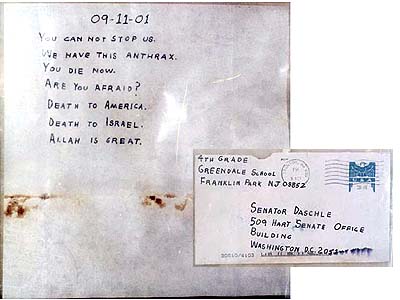 09-11-01
YOU CAN NOT STOP US.
WE HAVE THIS ANTHRAX.
YOU DIE NOW.
ARE YOU AFRAID?
DEATH TO AMERICA.
DEATH TO ISRAEL.
ALLAH IS GREAT.
4TH GRADE
GREENDALE SCHOOL
FRANKLIN PARK NJ 08852
SENATOR DASCHLE
509 HART SENATE OFFICE
BUILDING
WASHINGTON D.C.